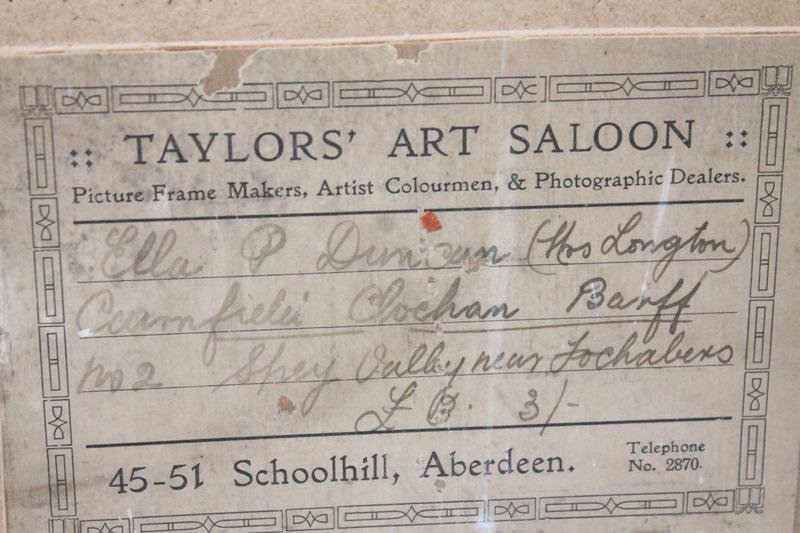 :: TAYLORS' ART SALOON ::
Picture Frame Makers, Artist Colourmen, & Photographic Dealers.
Ella P Duncan (Mrs Longton)
Cairnfield Clochan Banff
No 2 Spey Valley near Fochabers
L B. 3/-
45-51 Schoolhill, Aberdeen.
Telephone
No. 2870.